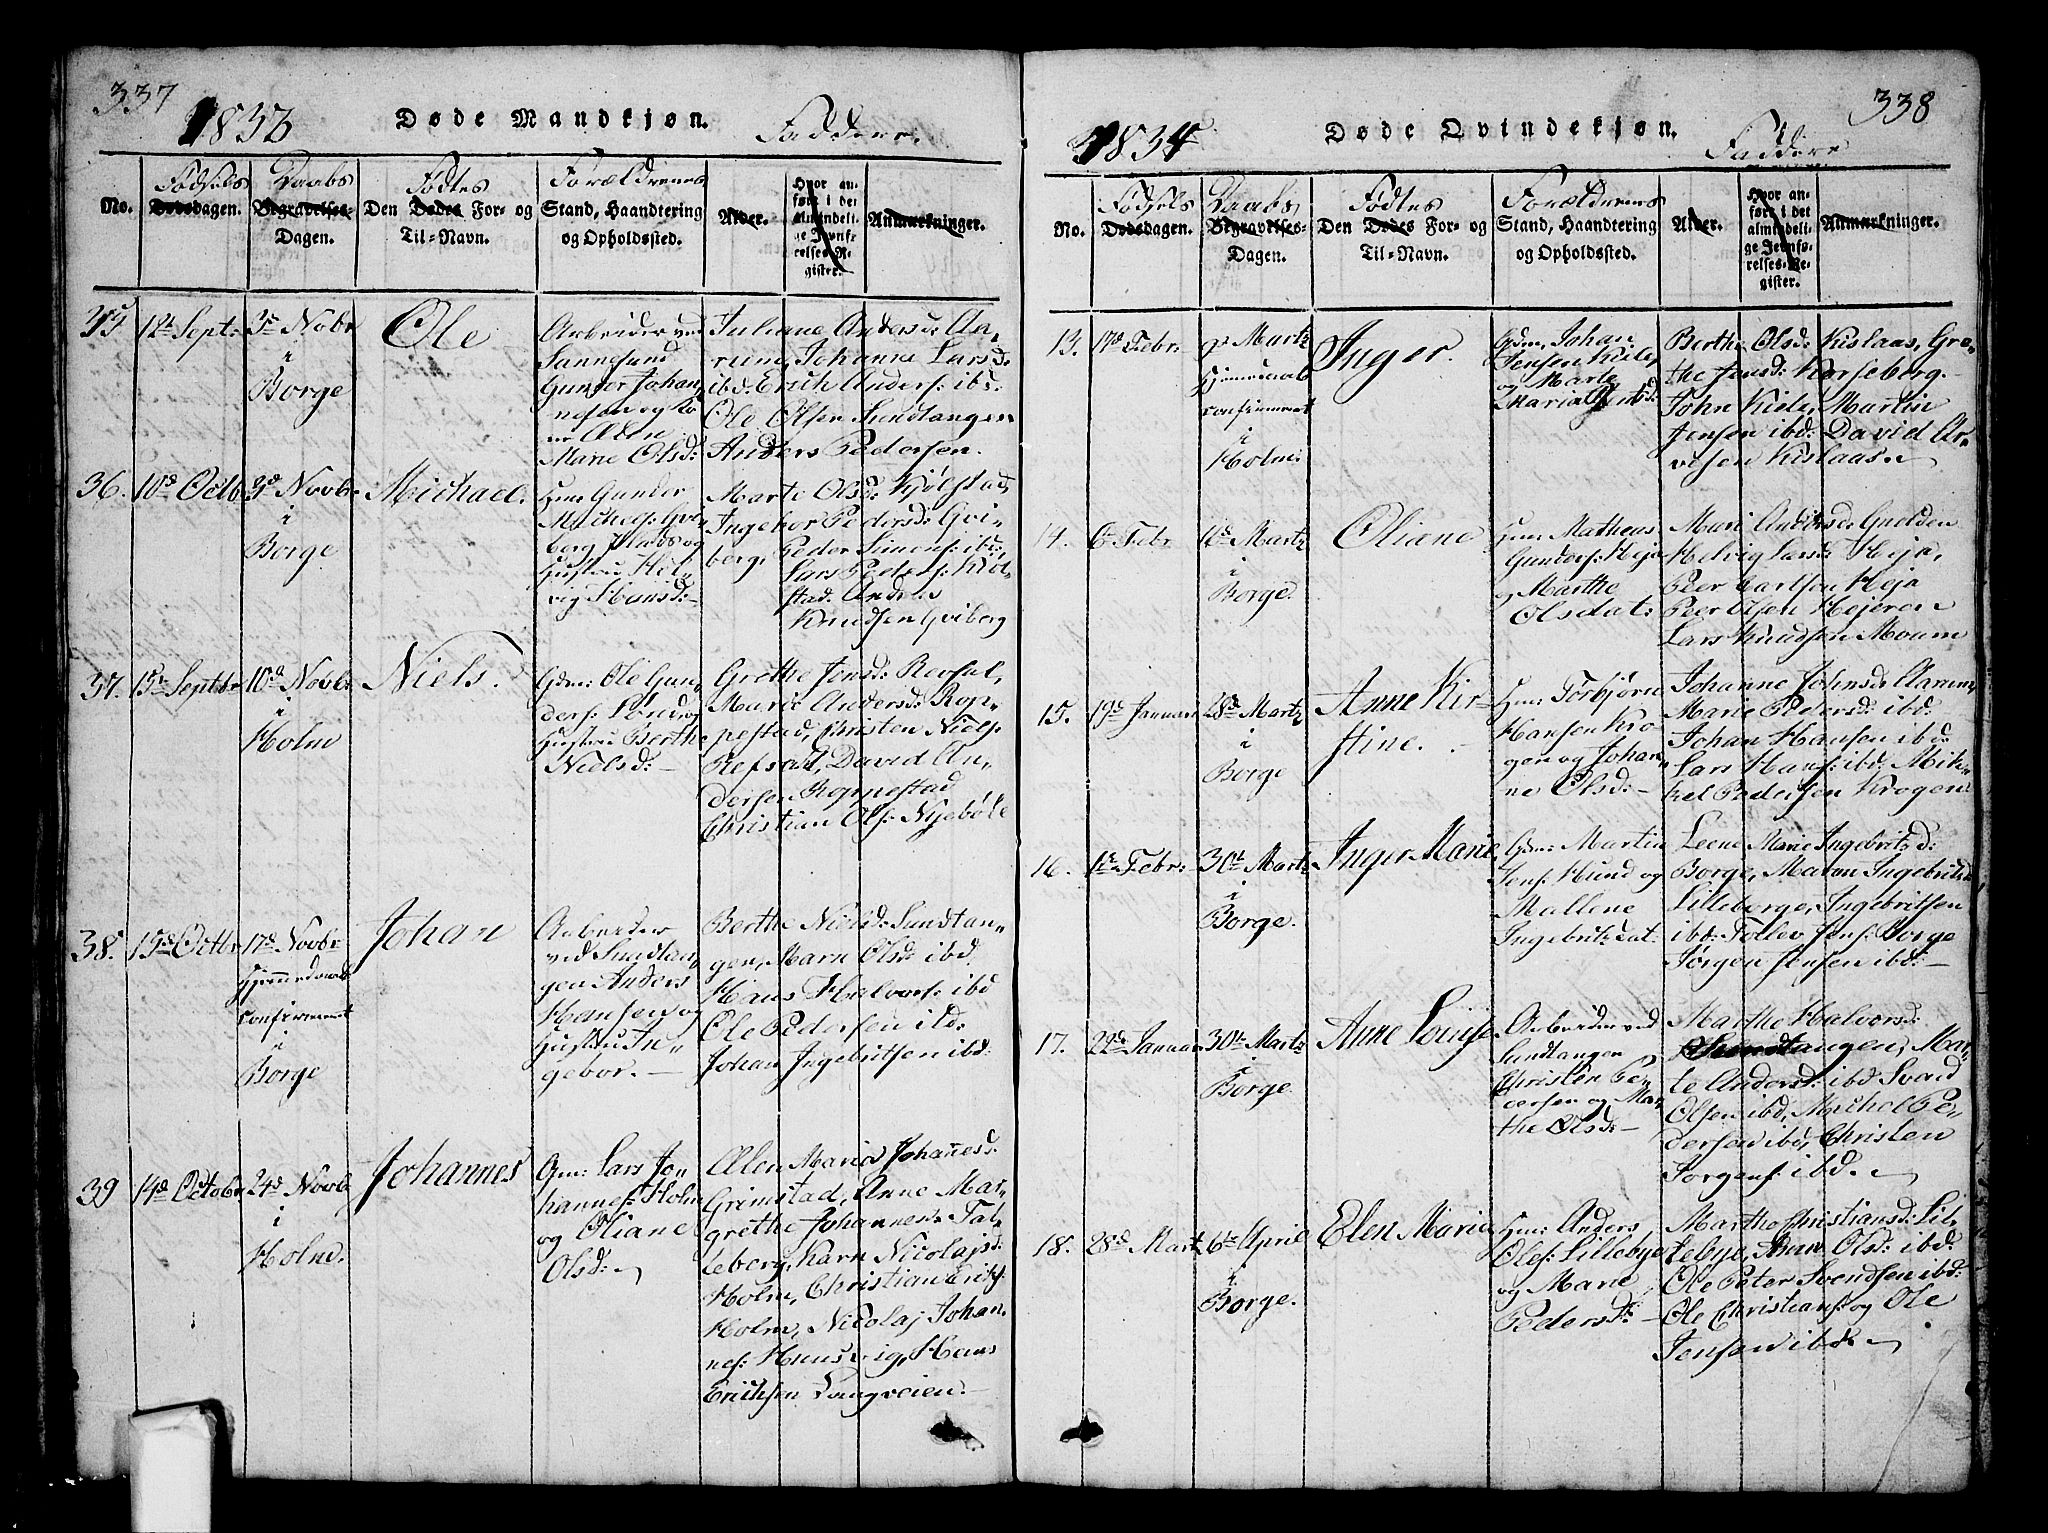 337
1833 Døde Mandkjøn. Faddere.
No.
Fødsels
Dødsdagen.
Daabs
Begravelses-
Dagen.
Fødtes
Den Dødes For- og
Til-Navn.
Forældrenes
Stand, Haandtering
og Opholdssted.
Alder.
Hvor an-
ført i det
almindeli-
ge Jevnfø-
relses-Re-
gister.
Anmærkninger.
35 12te Sept: 3die Novbr
i
Borge
Ole
Arbeider ved
Sannesund
Gunder Johan-
nesen og Ko-
ne Elen
Marie Olsd:
Juliane Andersd:
Johanne Larsd:
ibd: Erich Anders: ibd:
Ole Olsen Sundtangen
Anders Pedersen.
36. 10d Octb 3d Novbr
i
Borge
Michael.
Hm: Gunder
Michels: Gvi-
berg Plads og
Hustru Hel-
vig Hansd:
Marte Olsd: Kjølstad
Ingebor Pedersd: Gvi-
berg, Peder Simons: ibd:
Lars Peders: Kiøl-
stad. Anders
Knudsen Gviberg
37. 15de Septbr 10d Novbr
i
Holm
Niels.
Gdm: Ole Gun-
ders: og
Hustru Berthe
Nielsd:
Grethe Jensd: Refsal,
Marie Andersd: Rop-
pestad, Christen Niels:
Refsal, David An-
dersen Roppestad
Christian Ols: Nyebøle
38. 15d Octbr 17d Novbr
Hjemmedøbt
confirmeret
i
Borge
Johan
Arbeider
ved Sundtan-
gen Anders
Hansen og
Hustru In-
gebor.
Berthe Nielsd: Sundtan-
gen, Maren Olsd: ibd.
Hans Halvors: ibd
Ole Pedersen ibd:
Johan Ingebritsen ibd:
39 14d Octobr 24d Novb
i
Holm.
Johannes
Gm: Lars Jo-
hannes: Holm
og Oliane
Olsd:
Elen Maria Johannesd:
Grimstad, Anne Mar-
grethe Johannesd: Tal-
leberg, Karn Nicolajsd:
Holm, Christian Erichs:
Holm, Nicolaj Johan-
nes: Hunsvig, Hans
Erichsen Langveien.
338
1834 Døde Qvindekjøn. Faddere
No.
Fødsels
Dødsdagen.
Daabs
Begravelses-
Dagen.
Fødtes
Den Dødes For- og
Til-Navn.
Forældrenes
Stand, Haandtering
og Opholdssted.
Alder.
Hvor an-
ført i det
almindeli-
ge Jevnfø-
relses-Re-
gister.
Anmærkninger.
13. 17d Febr: 9d Martz
Hjemmedøbt
confirmeret
i
Holm:
Inger.
Gdm: Johan
Jensen Kiele
og Marte
Maria Jensd:
Berthe Olsd: Kislaas, Gre-
the Jensd: Korseberg.
John Kiele, Martin
Jensen ibd: David Ar-
vesen Kislaas.
14. 6te Febr 16d Martz
i
Borge.
Oliane
Hm: Matheas
Gunders: Heja
og Marthe
Olsdat:
Mari Andersd: Gulden
Helvig Larsd: Heja,
Peer Carlsen Heja
Peer Olsen Hejeren
Lars Knudsen Moum
15. 19d Januari 28d Martz
i
Borge
Anne Kir-
stine.
Hm: Torbjørn
Hansen Kro-
gen og Johan-
ne Olsd:
Johanne Johnsd:
Marie Pedersd: ibd:
Johan Hansen ibd:
Lars Hans: ibd: Mik-
kel Pedersen Krogen
16. 1te Febr: 30te Martz
i
Borge.
Inger Marie
Gdm: Martin
Jens: Hund og
Mallene
Ingebritzdat:
Leene Marie Ingebritzd:
Borge, Maren Ingebritzd
Lilleborge, Ingebritsen
ibd: Tollev Jens: Borge
Jørgen Jensen ibd:
17. 22d Januar 30te Martz
i
Borge.
Anne Louise
Arbeider ved
Sundtangen
Christen Pe-
dersen og Mar-
the Olsd:
Marthe Halvorsd:
Sundtangen, Mar-
te Andersd: ibd Svend
Olsen ibd, Michel Pe-
dersen ibd, Christen
Jørgens: ibd.
18. 28d Martz 6te Aprie
i
Borge.
Elen Maria
Hm: Anders
Oles: Lillebye
og Marie
Pedersd:
Marthe Christiansd: Lil-
lebye, Maren Olsd: ibd:
Ole Peter Svendsen ibd:
Ole Christians: og Ole
Jensen ibd